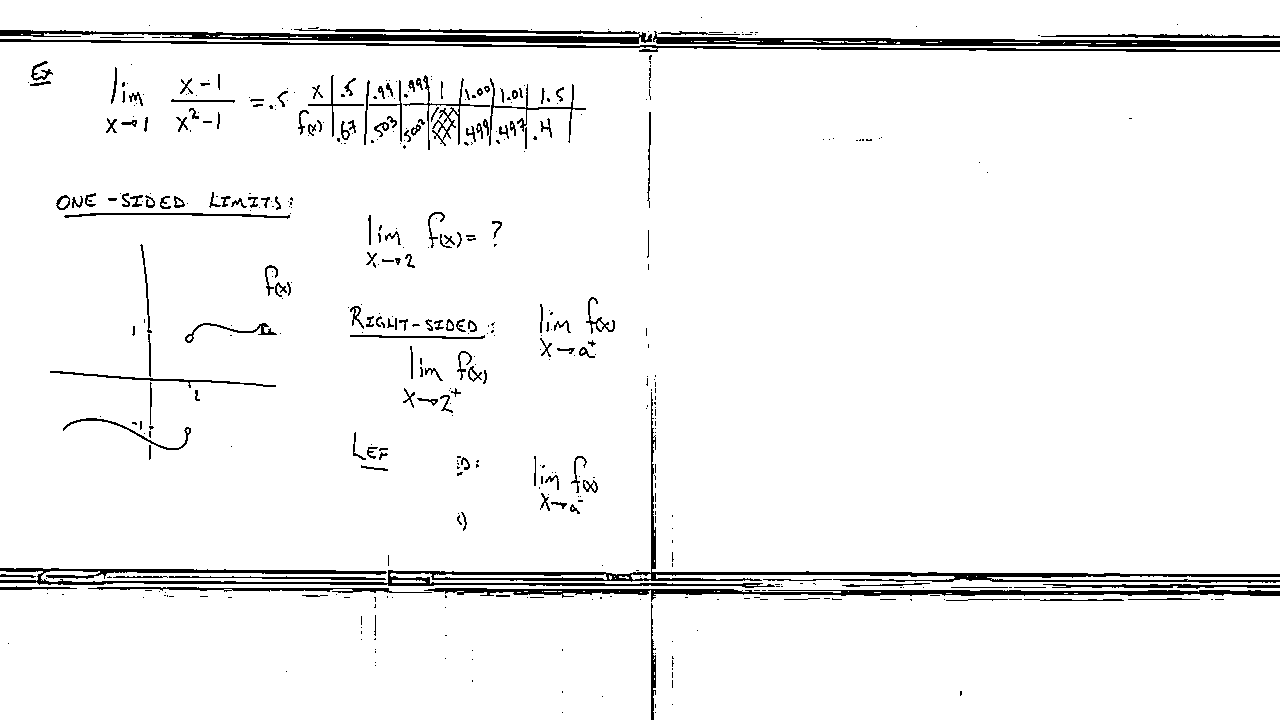 Ex lim x→1 (x-1)/(x²-1) = .5
x | .5 | .99 | .999 | 1 | 1.001 | 1.01 | 1.5
f(x) | .67 | .503 | .5003 | | .499 | .497 | .4
ONE-SIDED LIMITS:
lim x→2 f(x) = ?
f(x)
1
2
-1
RIGHT-SIDED: lim x→a⁺ f(x)
lim x→2⁺ f(x)
LEF D: lim x→a⁻ f(x)